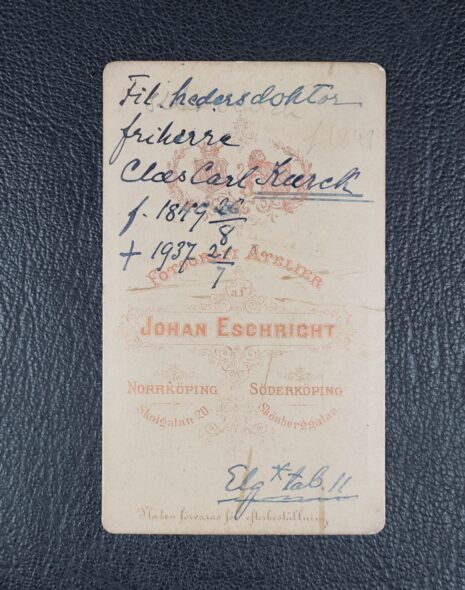 Fil hedersdoktor
friherre
Claes Carl Kurck
f. 1849 26/8
+ 1937 21/7
FOTOGRAFI ATELIER
af
JOHAN ESCHRICHT
NORRKÖPING SÖDERKÖPING
Skolgatan 20 Skönberggatan
Elg* tab. 11
Platen förvaras för efterbeställning